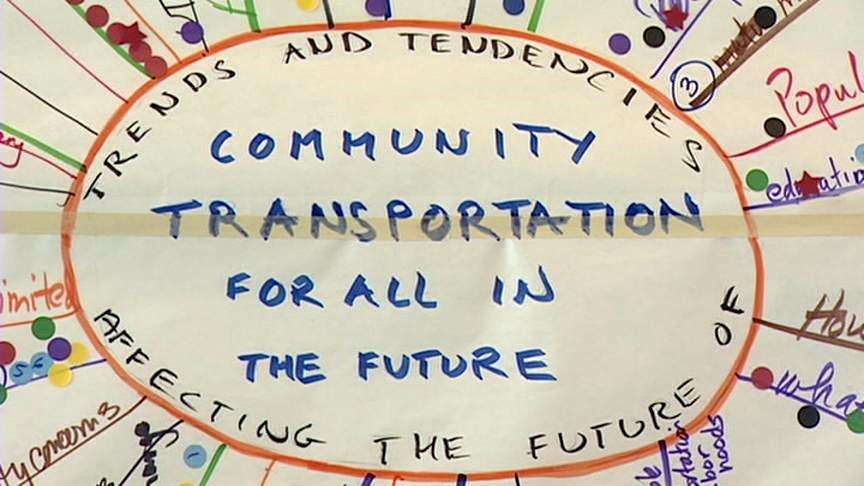 TRENDS AND TENDENCIES
COMMUNITY
TRANSPORTATION
FOR ALL IN
THE FUTURE
AFFECTING THE FUTURE OF
3
Popul
education
How
wha
imited
56
ty concerns
hoods